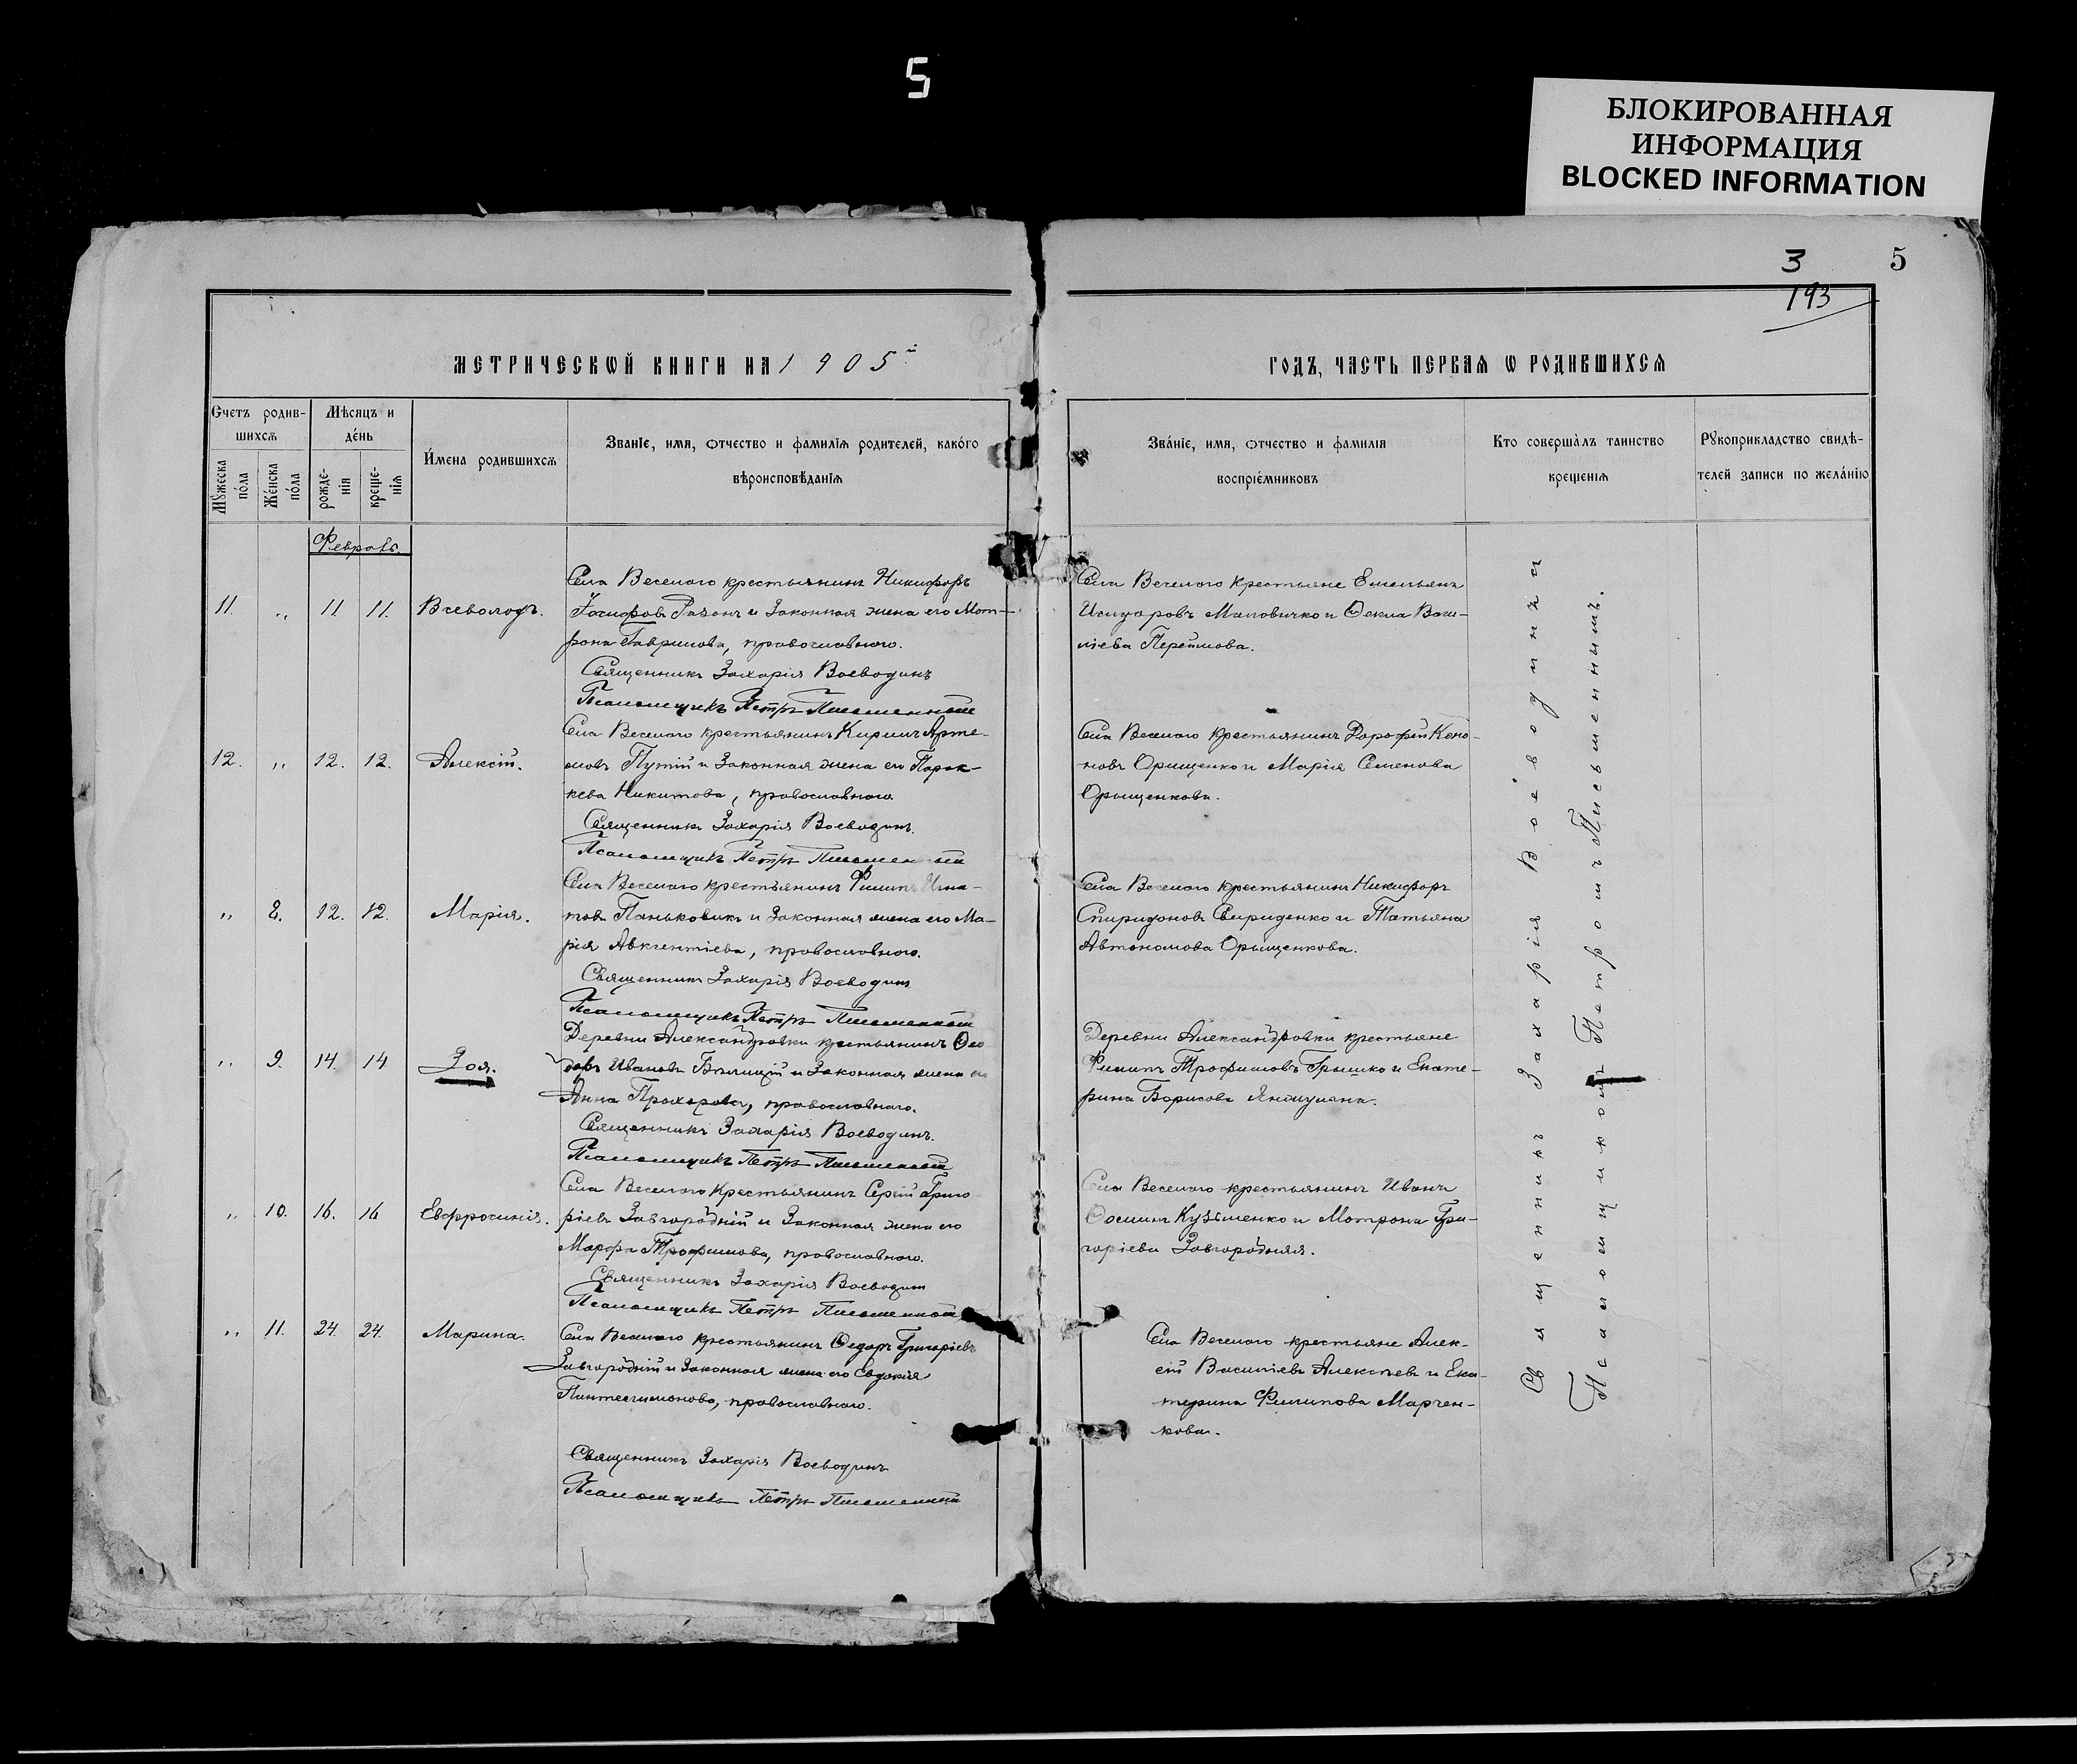 5
БЛОКИРОВАННАЯ
ИНФОРМАЦИЯ
BLOCKED INFORMATION
3
5
193
МЕТРИЧЕСКѠЙ КНИГИ НА 1905й
ГОДЪ, ЧАСТЬ ПЕРВАѦ Ѡ РОДИВШИХСѦ
Счетъ родив-
шихсѧ
Мѣсяцъ и
де́нь
Мꙋжеска
по́ла
Же́нска
по́ла
рожде-
нїѧ
креще-
нїѧ
И́мена родившихсѧ
Званїе, имя, ѻтчество и фамилїѧ родителей, како́го
вѣроисповѣданїѧ
Зва́нїе, имя, ѻтчество и фамилїѧ
воспрїе́мниковъ
Кто соверша̀лъ таинство
крещенїѧ
Рꙋкоприкладство свидѣ-
телей записи по жела́нїю
Февраль.
11. „ 11 11. Всеволодъ.
Села Веселаго крестьянинъ Никифоръ
Іосифовъ Разонъ и законная жена его Мот-
рона Гаврилова, православнаго.
Священникъ Захарія Воеводинъ
Псаломщикъ Петръ Письменный
Села Веселаго крестьяне Емельянъ
Исидоровъ Маловичко и Ѳекла Васи-
ліева
12. „ 12. 12. Алексій.
Села Веселаго крестьянинъ Кирилъ Арте-
мовъ Путій и законная жена его Парас-
кева Никитова, православнаго
Священникъ Захарія Воеводинъ.
Псаломщикъ Петръ Письменный
Села Веселаго крестьянинъ Дорофей Коно-
новъ Орищенко и Марія Семенова
Орыщенкова.
„ 8. 12. 12. Марія.
Села Веселаго крестьянинъ Филипъ Игна-
товъ Паньковикъ и законная жена его Ма-
рія Авксентіева, православнаго.
Священникъ Захарія Воеводинъ
Псаломщикъ Петръ Письменный
Села Веселаго крестьянинъ Никифоръ
Спиридоновъ Свириденко и Татьяна
Автономова Орыщенкова.
„ 9. 14. 14. Зоя.
Деревни Александровки крестьянинъ Ѳео
доръ Ивановъ Билицій и законная жена его
Анна Прохорова, православнаго.
Священникъ Захарія Воеводинъ.
Псаломщикъ Петръ Письменный
Деревни Александровки крестьяне
Филипъ Трофимовъ Грышко и Екате-
рина Борисова
„ 10. 16. 16 Евфросинія.
Села Веселаго крестьянинъ Сергій Григо
ріевъ Завгородній и законная жена его
Марфа Трофимова, православнаго.
Священникъ Захарія Воеводинъ
Псаломщикъ Петръ Письменный
Села Веселаго крестьянинъ Иванъ
Ѳоминъ Кузьменко и Мотрона Гри-
горіева Завгородняя.
„ 11. 24. 24. Марина.
Села Веселаго крестьянинъ Ѳедоръ Григоріевъ
Завгородній и законная жена его Евдокія
Пантелеимонова, православнаго.
Священникъ Захарія Воеводинъ
Псаломщикъ Петръ Письменный
Села Веселаго крестьяне Алек-
сій Василіевъ Алексѣевъ и Ека-
терина Филипова Марчен-
кова.
Священникъ Захарія Воеводинъ и
Псаломщикомъ Петромъ Письменнымъ.